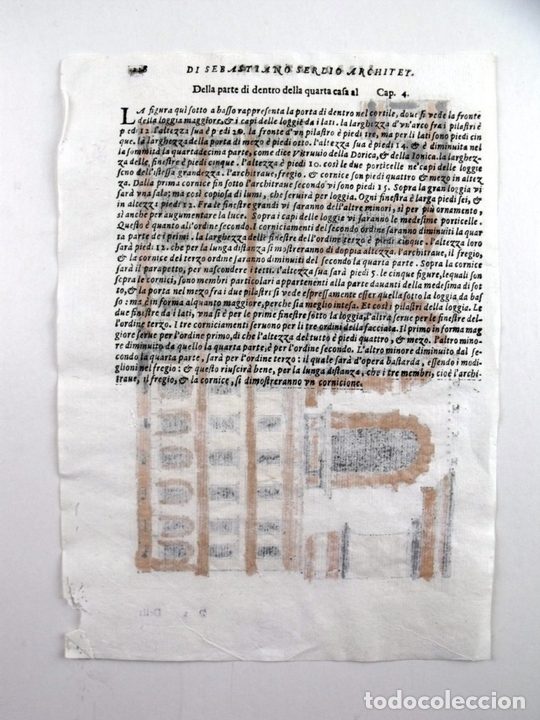 DI SEBASTIANO SERLIO ARCHITET.
Della parte di dentro della quarta casa al Cap. 4.
LA figura quì sotto a basso rappresenta la porta di dentro nel cortile, doue si vede la fronte
della loggia maggiore, & i capi delle loggie da i lati. la larghezza d'vn'arco fra i pilastri è
piedi 12. l'altezza sua è piedi 20. la fronte d'vn pilastro è piedi tre, ma per li lati sono piedi
cinque. la larghezza della porta di mezo è piedi otto. l'altezza sua piedi 14. & è diminuita nel
la sommità la quartadecima parte, come dice Vitruuio della Dorica, & della Ionica. la larghez-
za delle finestre è piedi cinque. l'altezza è piedi 10. così le due porticelle ne' capi delle loggie
sono dell'istessa grandezza. l'architraue, fregio, & cornice son piedi quattro & mezo in altez
za. Dalla prima cornice fin sotto l'architraue secondo vi sono piedi 15. Sopra la gran loggia vi
sarà vna sala; ma così copiosa di lumi, che seruirà per loggia. Ogni finestra è larga piedi sei, &
in altezza piedi 12. Fra le finestre grandi vi saranno dell'altre minori, sì per più ornamento,
sì anche per augumentare la luce. Sopra i capi delle loggie vi saranno le medesime porticelle.
Questo è quanto all'ordine secondo. I corniciamenti del secondo ordine saranno diminuiti la quar
ta parte de' primi. la larghezza delle finestre dell'ordine terzo è piedi cinque. l'altezza loro
sarà piedi 12. che per la lunga distanza si mostreranno di doppia altezza. l'architraue, il fregio,
& la cornice del terzo ordine saranno diminuiti del secondo la quarta parte. Sopra la cornice
sarà il parapetto, per nascondere i tetti. l'altezza sua sarà piedi 5. le cinque figure, lequali son
sopra le cornici, sono membri particolari appartenenti alla parte dauanti della medesima di sot
to, & la porta nel mezo fra due pilastri si vede espressamente esser quella sotto la loggia da bas
so: ma è in forma alquanto maggiore, perche sia meglio intesa. Et così i pilastri della loggia. Le
due finestre da i lati, vna si è per le prime finestre sotto la loggia, l'altra serue per le finestre del-
l'ordine terzo. I tre corniciamenti seruono per li tre ordini della facciata. Il primo in forma mag
giore serue per l'ordine primo, sì che l'altezza del tutto è piedi quattro, & mezo. L'altro mino-
re diminuito da quello la quarta parte, è per l'ordine secondo. L'altro minore diminuito dal se-
condo la quarta parte, sarà per l'ordine terzo: il quale sarà d'opera bastarda, essendo i modi-
glioni nel fregio: & questo riuscirà bene, per la lunga distanza, che i tre membri, cioè l'archi-
traue, il fregio, & la cornice, si dimostreranno vn cornicione.
todocoleccion
todocoleccion.net